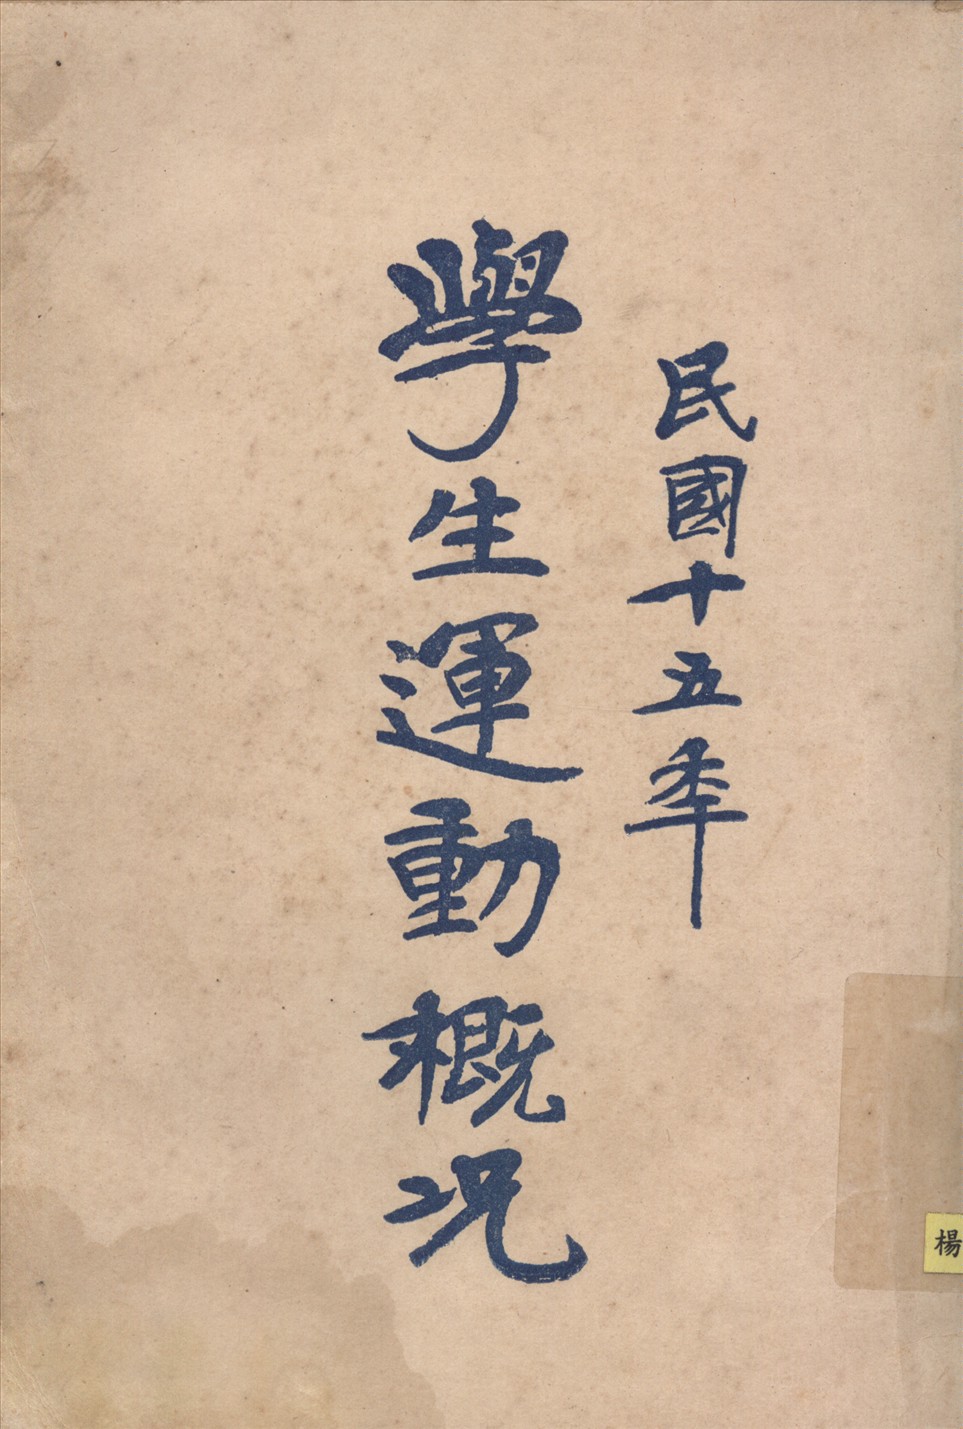 民國十五年
學生運動概况
楊